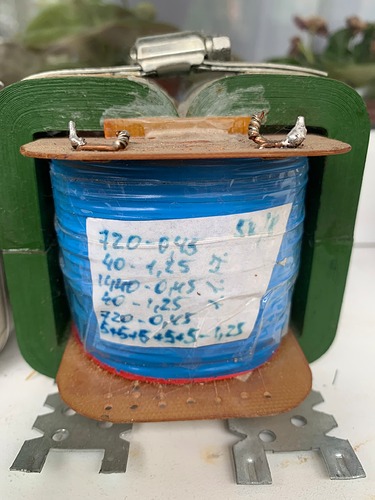 720-0,45
40-1,25
1440-0,45
40-1,25
720-0,45
5+5+5+5+5-1,25